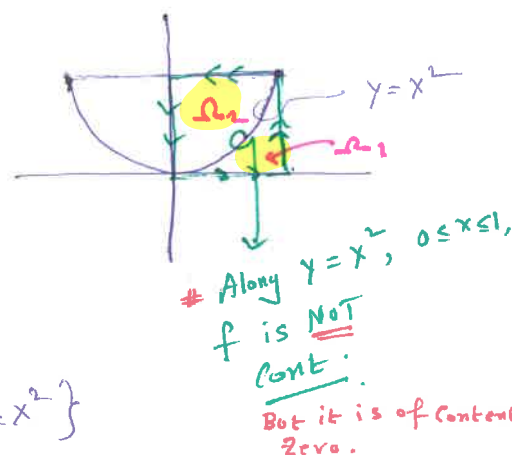 y = x²
Ω₂
Ω₁
# Along y = x², 0 ≤ x ≤ 1,
f is NOT
Cont.
= x² }
But it is of Content
Zero.